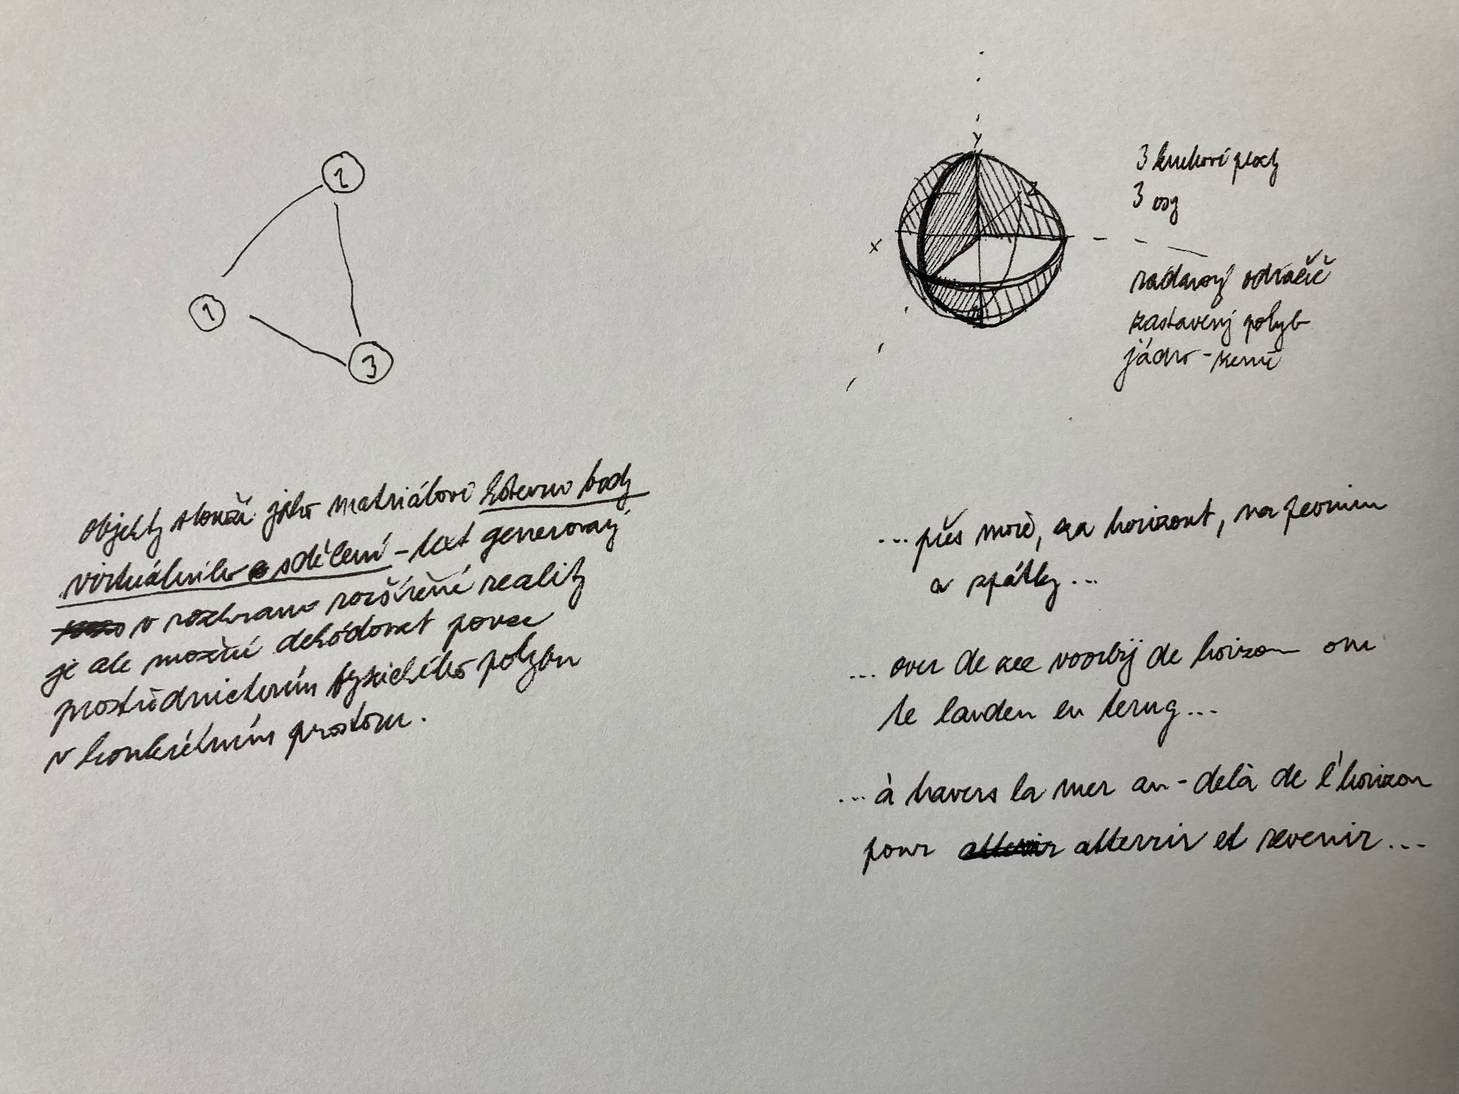 2
1
3
objekty slouží jako materiálové kotevní body
virtuálního sdělení - text generovaný
v rozhraní rozšířené reality
je ale možné dekódovat pouze
prostřednictvím fyzického pohybu
v konkrétním prostoru.
Y
Z
X
3 kruhové plochy
3 osy
radarový odražeč
zastavený pohyb
jádro - země
...přes moře, za horizont, na pevninu
a zpátky...
...over de zee voorbij de horizon om
te landen en terug...
...à travers la mer au-delà de l'horizon
pour atterrir et revenir...